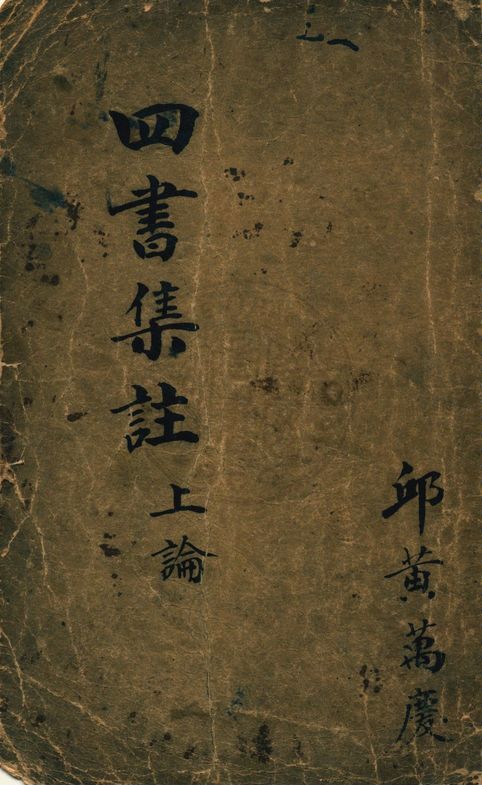 邱黃萬慶
四書集註 上論